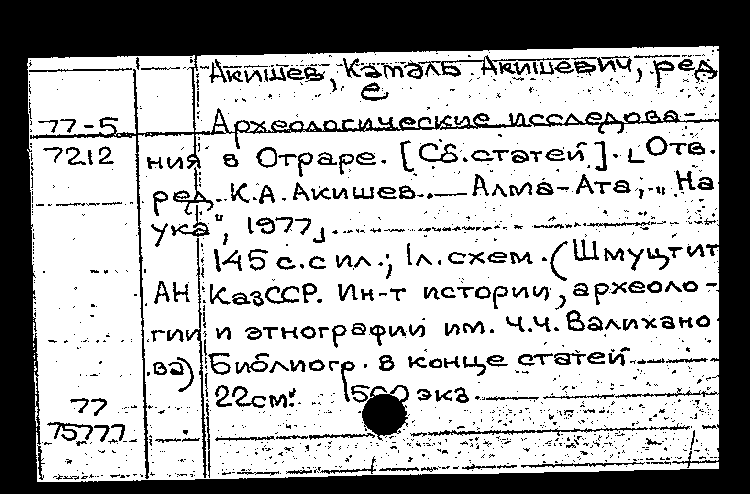 Акишев, Кемаль Акишевич, ред
77-5 Археологические исследова-
7212 ния в Отраре. [Сб.статей]. [Отв.
ред. К.А.Акишев. — Алма-Ата, "На
ука", 1977].
145 с.с ил.; 1л.схем. (Шмуцтит
АН КазССР. Ин-т истории, археоло-
гии и этнографии им. Ч.Ч. Валихано
ва) Библиогр. в конце статей
77 22см. 1500 экз.
75777